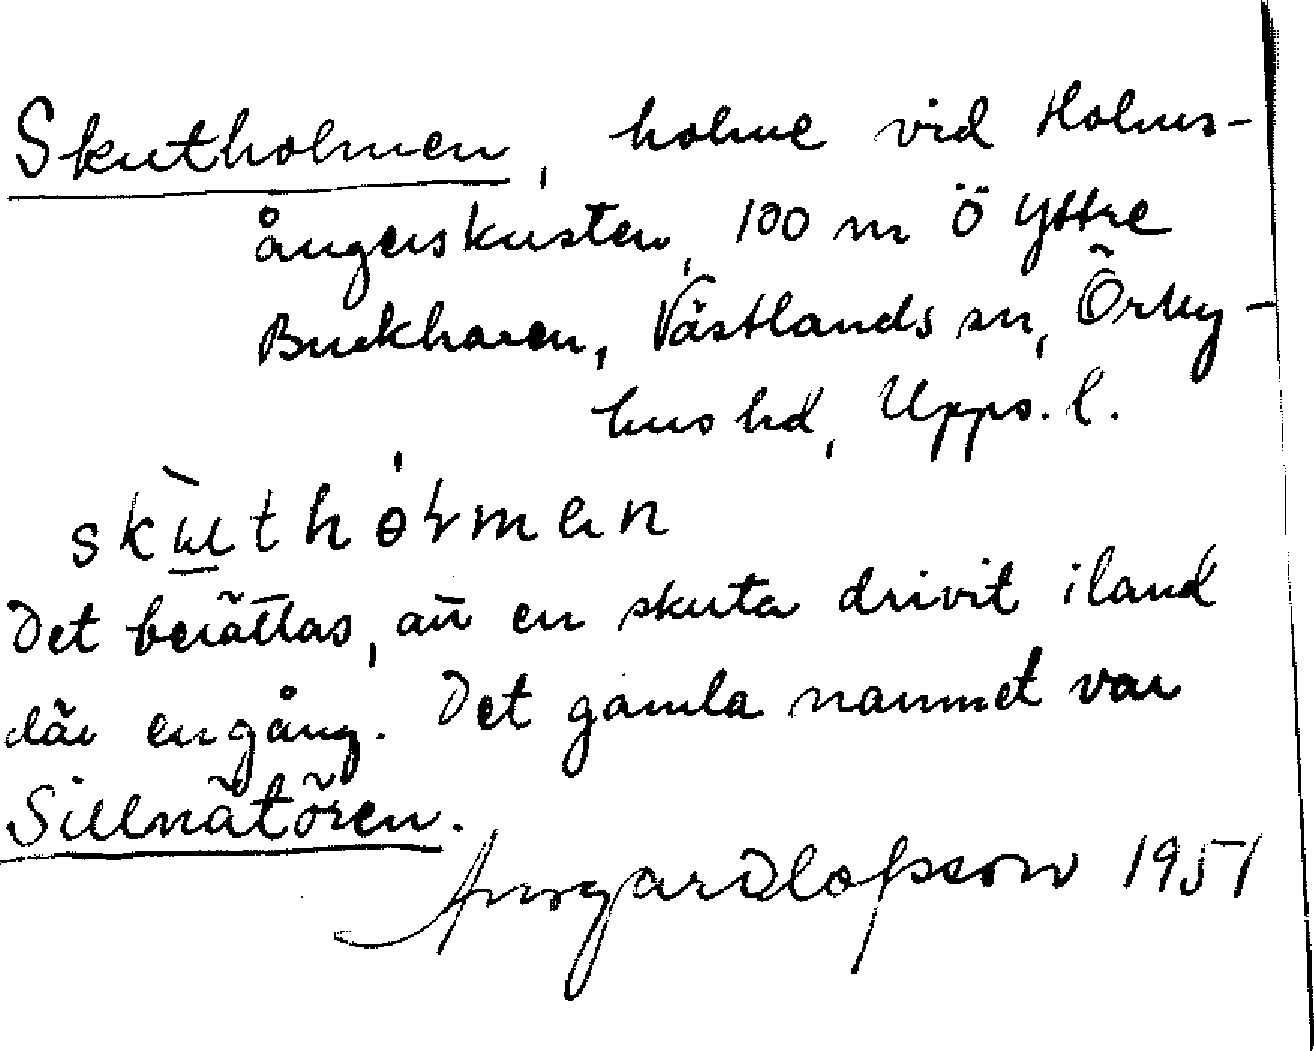 Skutholmen, holme vid Holms-
ångerskusten, 100 m ö Yttre
Buckharen, Västlands sn, Örby-
hus hd, Upps. l.
Det berättas, att en skuta drivit iland
där en gång. Det gamla namnet var
Sillnätören.
Ansgar Olofsson 1951